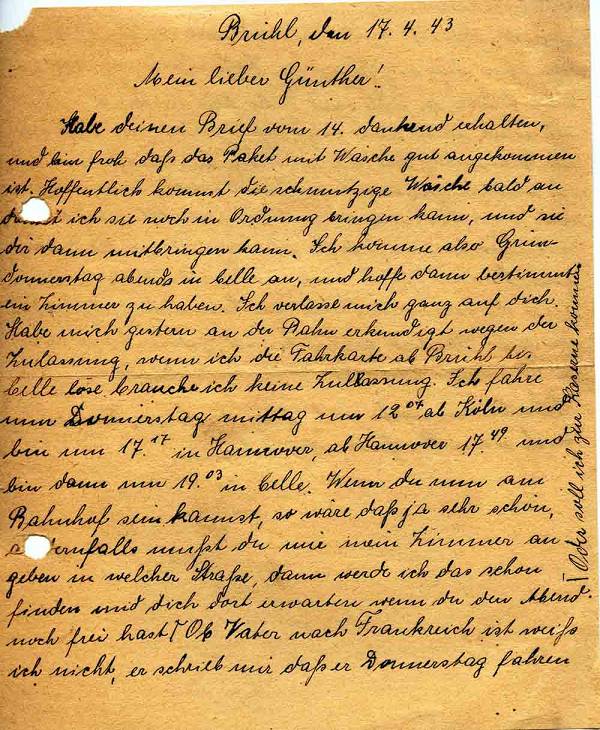 Brühl, den 17. 4. 43
Mein lieber Günther!
Habe deinen Brief vom 14. dankend erhalten,
und bin froh daß das Paket mit Wäsche gut angekommen
ist. Hoffentlich kommt die schmutzige Wäsche bald an
damit ich sie noch in Ordnung bringen kann, und sie
dir dann mitbringen kann. Ich komme also Grün-
donnerstag abends in Celle an, und hoffe dann bestimmt
ein Zimmer zu haben. Ich verlasse mich ganz auf dich.
Habe mich gestern an der Bahn erkundigt wegen der
Zulassung, wenn ich die Fahrkarte ab Brühl bis
Celle löse brauche ich keine Zulassung. Ich fahre
nun Donnerstag mittag um 12 07 ab Köln und
bin um 17.17 in Hannover, ab Hannover 17.49 und
bin dann um 19.03 in Celle. Wenn du nun am
Bahnhof sein kannst, so wäre daß ja sehr schön,
andernfalls mußt du mir mein Zimmer an
geben in welcher Straße, dann werde ich das schon
finden und dich dort erwarten wenn du den Abend
noch frei hast. Ob Vater nach Frankreich ist weiß
ich nicht, er schrieb mir daß er Donnerstag fahren
Oder soll ich zur Kaserne kommen